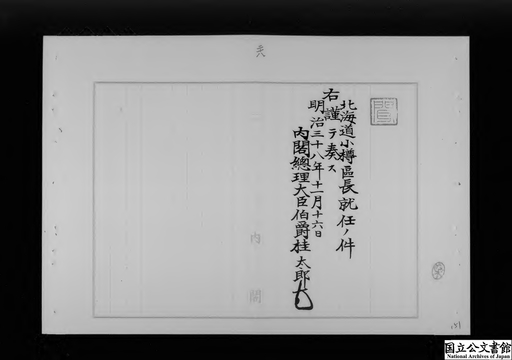 北海道小樽區長就任ノ件
右謹テ奏ス
明治三十八年十一月十六日
内閣總理大臣伯爵桂太郎
内閣
国立公文書館
National Archives of Japan